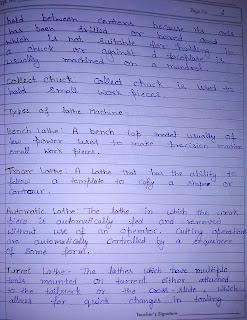 Page No. 8
held between centers because its axis
has been drilled or bored out
which is not suitable for holding in
a chuck or against a faceplate is
usually machined on a mandrel.
Collect chuck Collect chuck is used to
hold small work pieces.
Types of Lathe Machine:
Bench Lathe: A bench top model usually of
low power used to make precision machine
small work pieces.
Tracer Lathe: A Lathe that has the ability to
follow a template to copy a shape or
contour.
Automatic Lathe: The lathe in which the work
piece is automatically fed and removed
without use of an operator. Cutting operations
are automatically controlled by a sequencer
of some form.
Turret Lathe:- The lathes which have multiple
tools mounted on turret either attached
to the tailstock or the cross-slide, which
allows for quick changes in tooling
Teacher's Signature